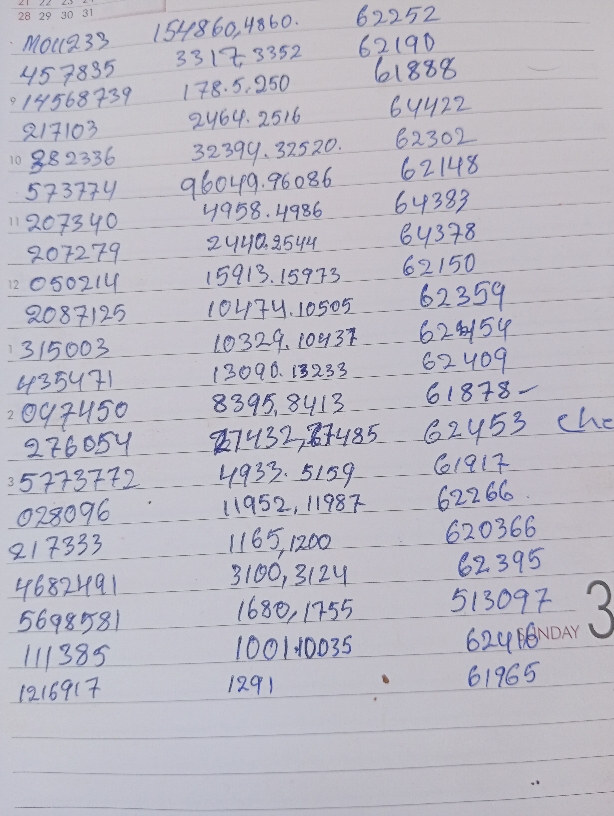 21 22 23 24
28 29 30 31
M011233 154860,4860. 62252
457835 3317,3352 62190
9 14568739 178.5.250 61888
217103 2464.2516 64422
10 382336 32394.32520. 62302
573774 96049.96086 62148
11 207340 4958.4986 64383
207279 2440.2544 64378
12 050214 15913.15973 62150
2087125 10474.10505 62359
1 315003 10329.10437 62454
435471 13090.13233 62409
2 047450 8395,8413 61878
276054 27432,27485 62453 che
3 5773772 4933.5159 61917
028096 11952,11987 62266
217333 1165,1200 620366
4682491 3100,3124 62395
5698581 1680,1755 513097
3
111385 10011.10035 62416 SUNDAY
1216917 1291 61965